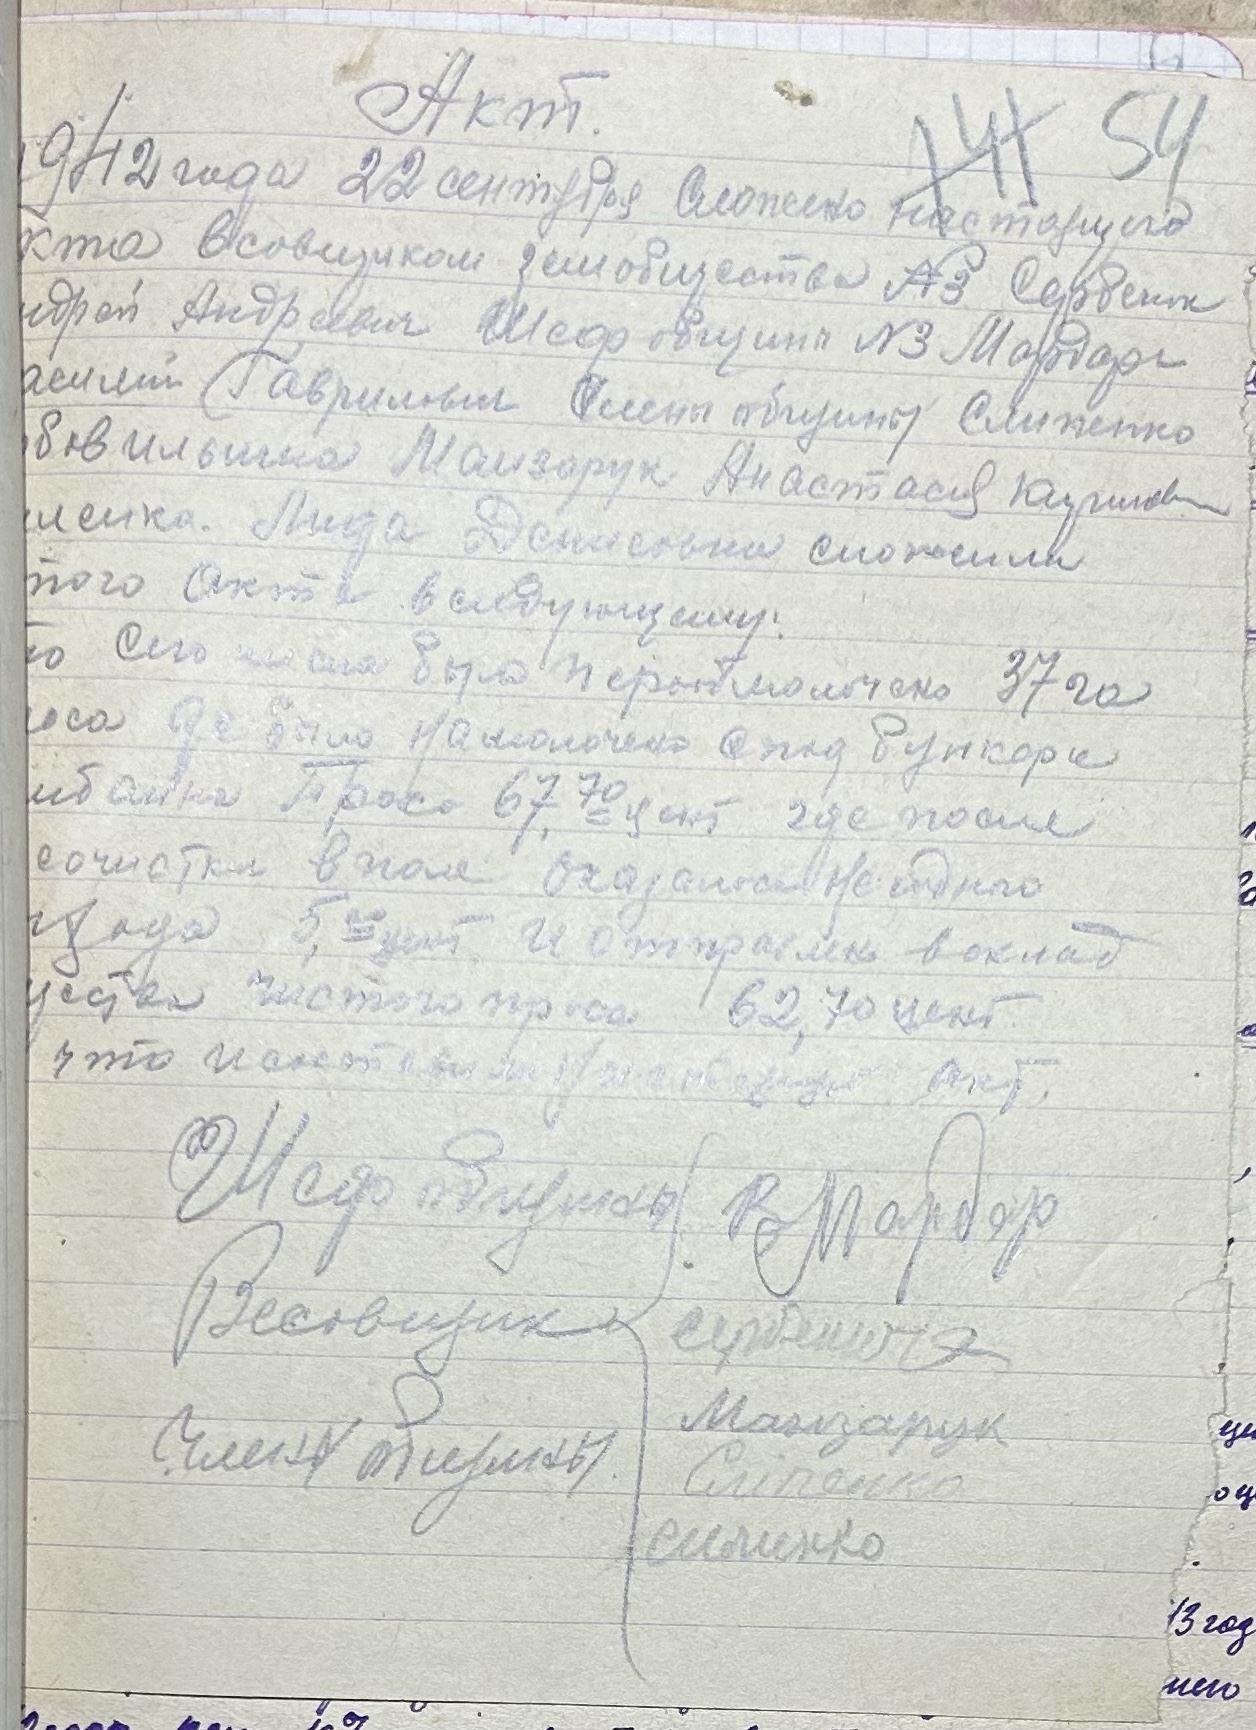 Акт.
141 54
1942 года 22 сентября Сложено настоящего
кта Всовщиком земобщества №3 Сербенюк
ндрей Андреевич Шеф общины №3 Мардарь
асилий Гаврилович Члены общины Слипенко
Ильична Манзарук Анастасия
ленко. Лида Денисовна сложили
того Акта в следующему:
то Сего числа было переобмолочено 37 га
роса где было намолочено спод бункера
мбайна Просо 67,70 цент где после
сочистки в поле оказалось негодного
5,00 цент. и отправлен в склад
чистого проса 62,70 цент.
что и составили настоящий акт.
Шеф общины В Мардар
Весовщик Сербенюк
Члены общины Манзарук
Сліпенко
Симинко
13 год
него